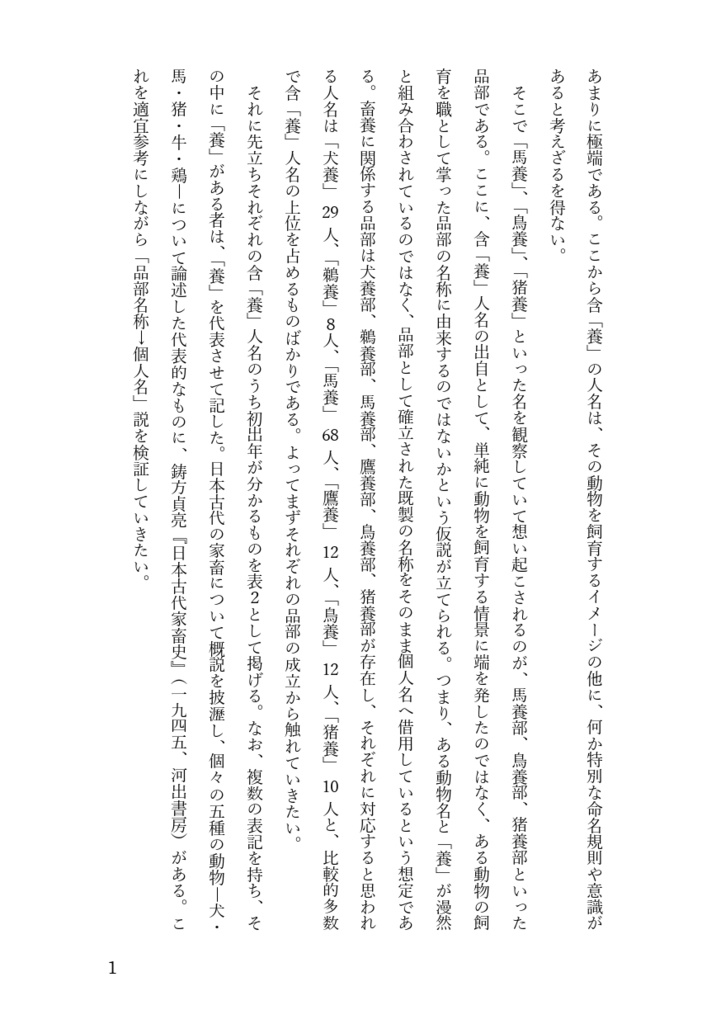 あまりに極端である。ここから含「養」の人名は、その動物を飼育するイメージの他に、何か特別な命名規則や意識が
あると考えざるを得ない。
そこで「馬養」、「鳥養」、「猪養」といった名を観察していて想い起こされるのが、馬養部、鳥養部、猪養部といった
品部である。ここに、含「養」人名の出自として、単純に動物を飼育する情景に端を発したのではなく、ある動物の飼
育を職として掌った品部の名称に由来するのではないかという仮説が立てられる。つまり、ある動物名と「養」が漫然
と組み合わされているのではなく、品部として確立された既製の名称をそのまま個人名へ借用しているという想定であ
る。畜養に関係する品部は犬養部、鵜養部、馬養部、鷹養部、鳥養部、猪養部が存在し、それぞれに対応すると思われ
る人名は「犬養」29人、「鵜養」8人、「馬養」68人、「鷹養」12人、「鳥養」12人、「猪養」10人と、比較的多数
で含「養」人名の上位を占めるものばかりである。よってまずそれぞれの品部の成立から触れていきたい。
それに先立ちそれぞれの含「養」人名のうち初出年が分かるものを表2として掲げる。なお、複数の表記を持ち、そ
の中に「養」がある者は、「養」を代表させて記した。日本古代の家畜について概説を披瀝し、個々の五種の動物―犬・
馬・猪・牛・鶏―について論述した代表的なものに、鋳方貞亮『日本古代家畜史』（一九四五、河出書房）がある。こ
れを適宜参考にしながら「品部名称→個人名」説を検証していきたい。
1